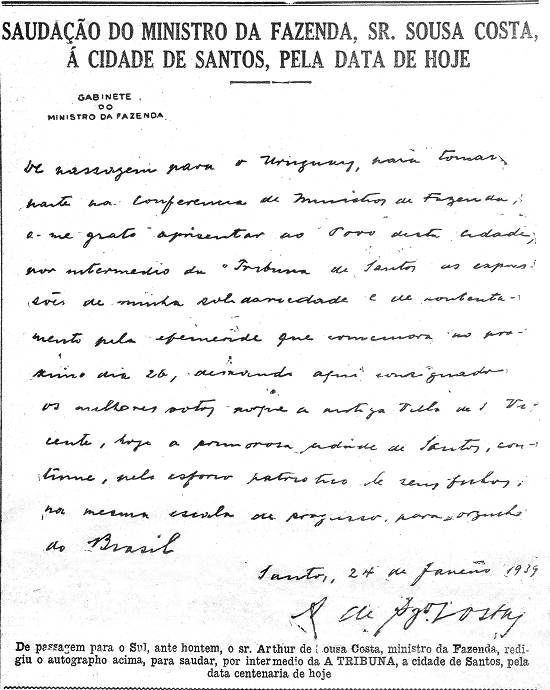 SAUDAÇÃO DO MINISTRO DA FAZENDA, SR. SOUSA COSTA,
Á CIDADE DE SANTOS, PELA DATA DE HOJE
GABINETE
DO
MINISTRO DA FAZENDA
De passagem para o Uruguay, para tomar
parte na Conferencia de Ministros de Fazenda,
é-me grato apresentar ao Povo desta cidade,
por intermedio da "Tribuna de Santos as expres-
sões de minha solidariedade e de contenta-
mento pela efemeride que comemora no pro-
ximo dia 26, deixando aqui consignado
os melhores votos para que a antiga Villa de S. Vi-
cente, hoje a primorosa cidade de Santos, con-
tinue, pelo esforço patriotico de seus filhos,
na mesma escala de progresso, para orgulho
do Brasil
Santos, 24 de Janeiro 1939
A de Sza. Costa
De passagem para o Sul, ante hontem, o sr. Arthur de Sousa Costa, ministro da Fazenda, redi-
giu o autographo acima, para saudar, por intermedio da A TRIBUNA, a cidade de Santos, pela
data centenaria de hoje